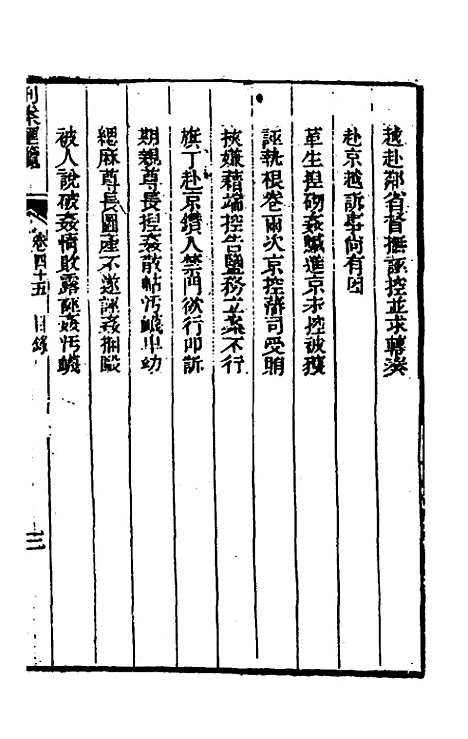 越赴鄰省督撫誣控並求轉奏
赴京越訴事尚有因
革生捏砌姦贓進京未控被獲
誣執根卷兩次京控藩司受賄
挾嫌藉端控告鹽務立案不行
旗丁赴京鑽入禁門欲行叩訴
期親尊長捏姦散帖汚衊卑幼
緦麻尊長圖產不遂誣姦捆毆
被人說破姦情敗露誣姦汚衊
刑案匯覽
卷四十五 目錄
三